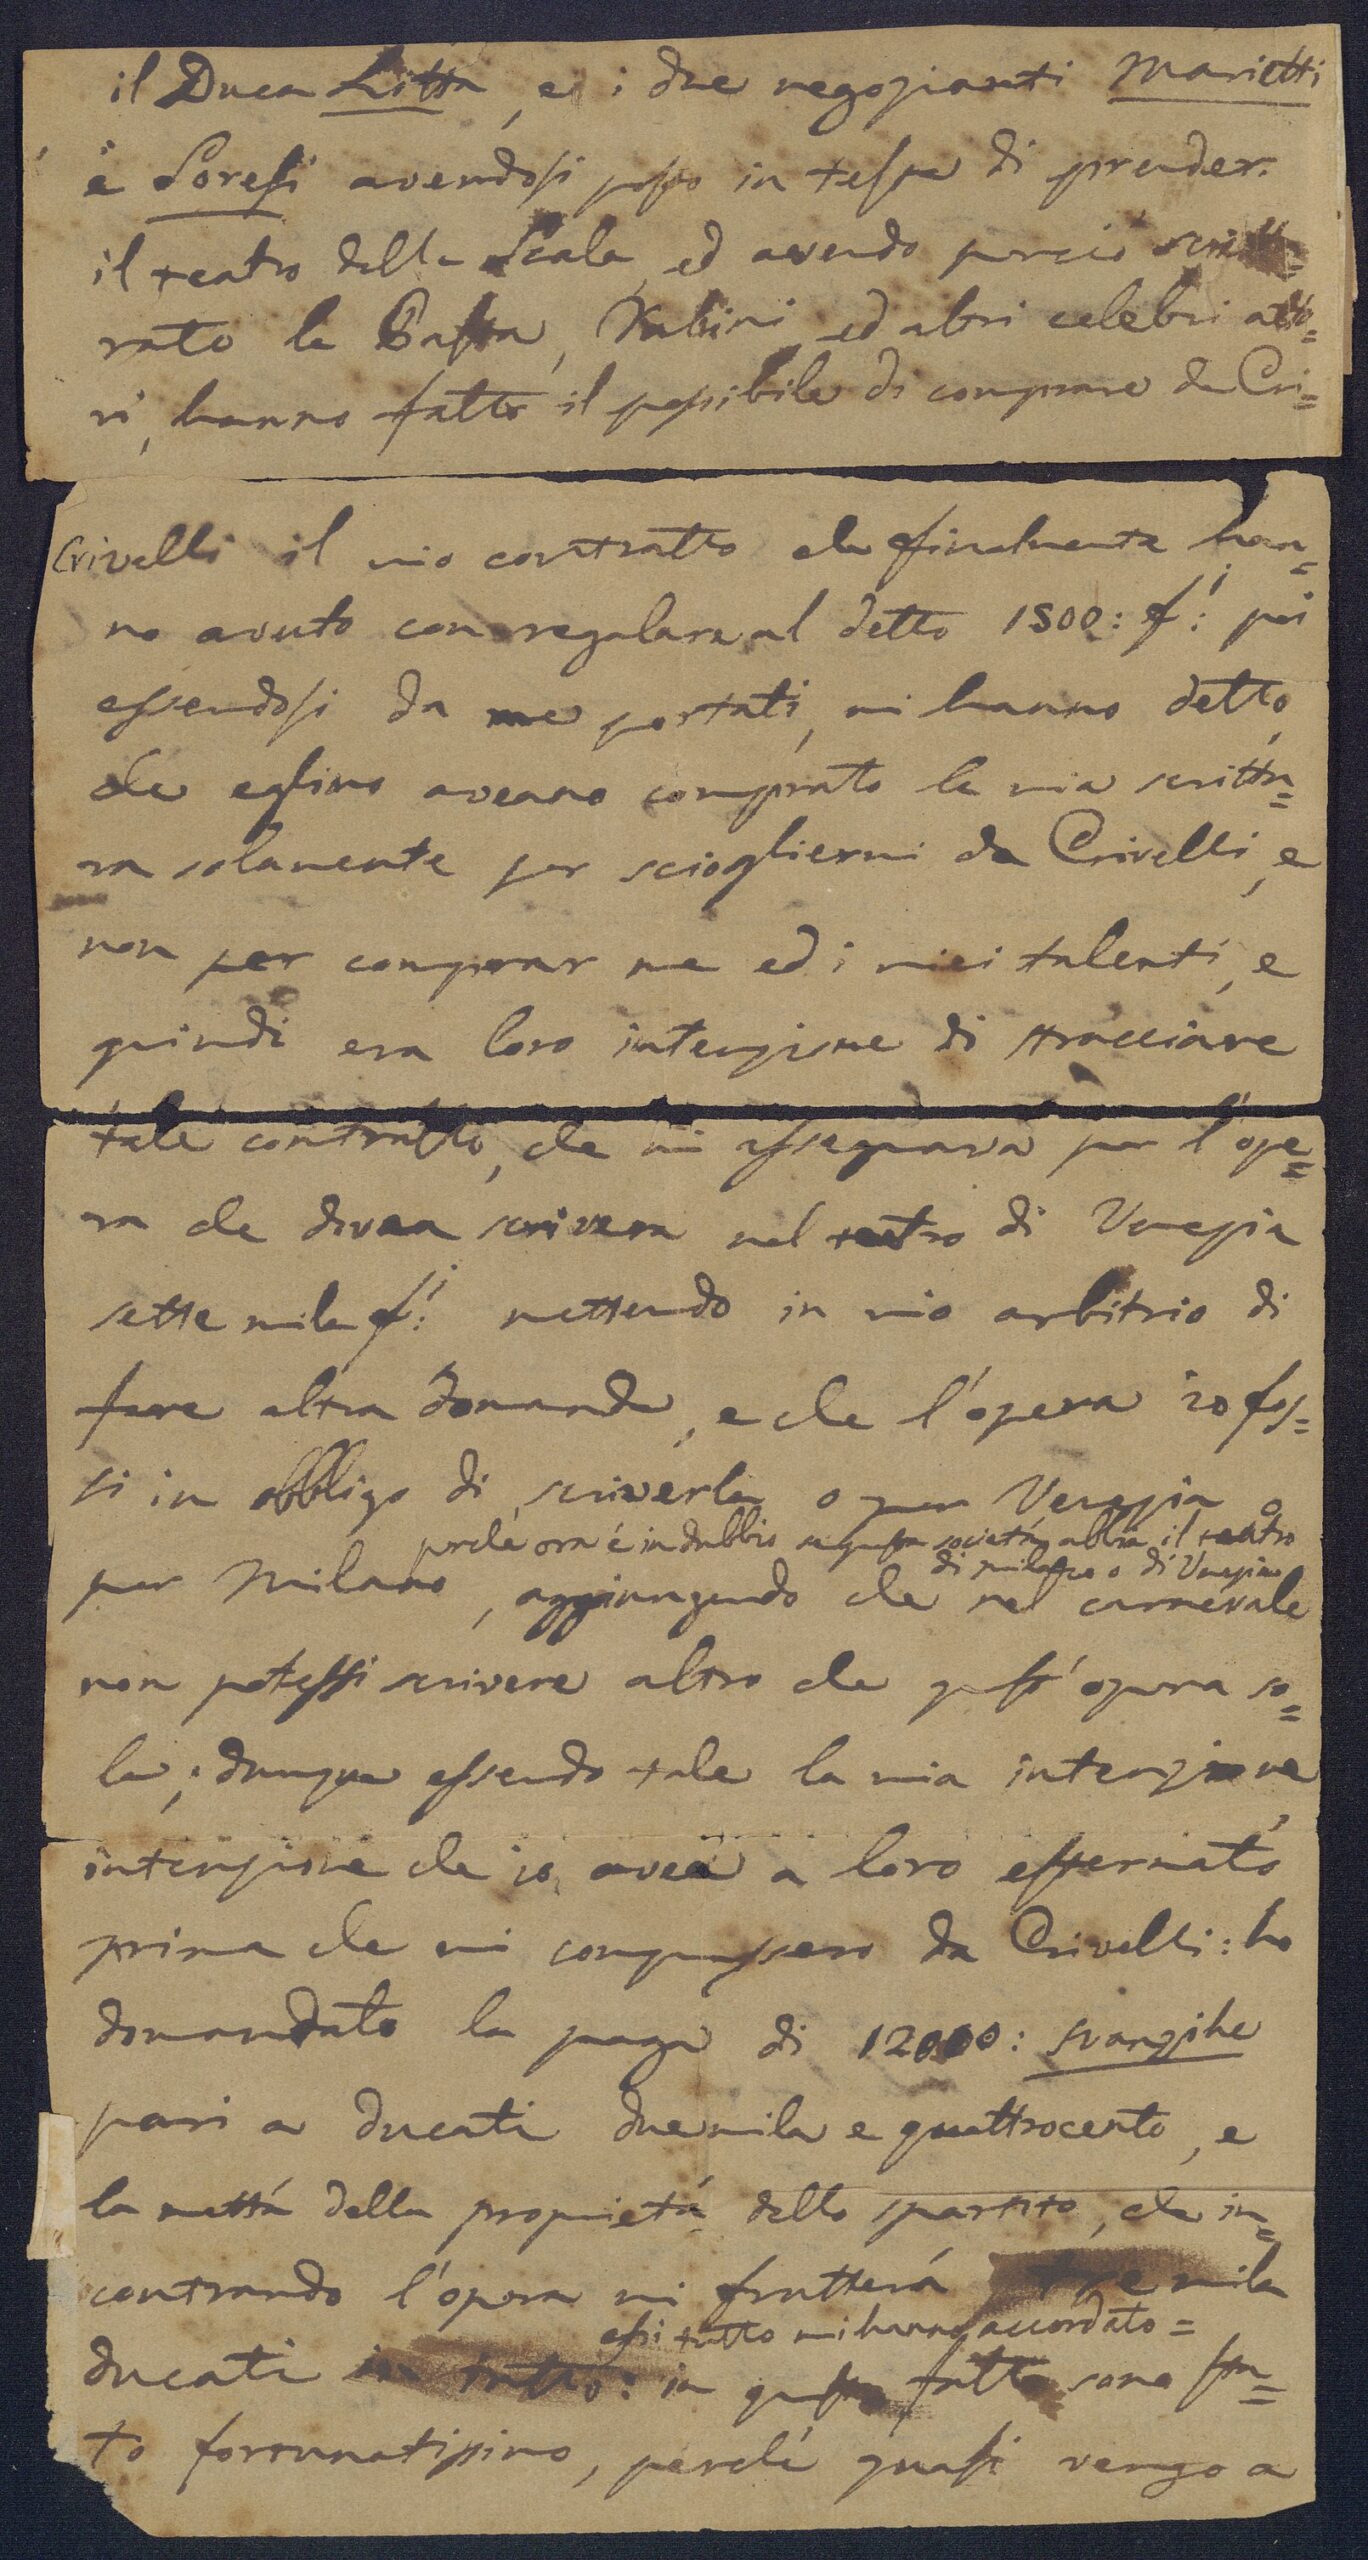 il Duca Litta, e i due negozianti Marietti
e Soresi avendosi posto in testa di prender
il teatro della Scala, ed avendo perciò scrittu=
rato la Pasta, Rubini, ed altri celebri atto=
ri, hanno fatto il possibile di comprare da Cri=
Crivelli il mio contratto che finalmente han=
no avuto con regalare al detto 1500: f.i: poi
essendosi da me portati, mi hanno detto,
che eglino aveano comprato la mia scrittu=
ra solamente per sciogliermi da Crivelli, e
non per comprar me ed i miei talenti, e
quindi era loro intenzione di stracciare
tale contratto, che mi assegnava per l'ope=
ra che dovea scrivere nel teatro di Venezia
sette mila f.i: mettendo in mio arbitrio di
fare altra domanda, e che l'opera io fos=
si in obbligo di scriverla o per Venezia o
perché ora é in dubbio se questa societá abbia il teatro
di milano o di Venezia
per Milano, aggiungendo che nel carnevale
non potessi scrivere altro che quest'opera so=
la; dunque essendo tale la mia intenzione,
intenzione che io avea a loro esternato
prima che mi comprassero da Crivelli: ho
domandato la paga di 12000: svanziche
pari a ducati duemila e quattrocento, e
la mettá della proprietá dello spartito, che in=
contrando l'opera mi frutterá tre mila
essi tutto mi hanno accordato=
ducati in tutto: in questo fatto sono sta=
to fortunatissimo, perché quasi vengo a